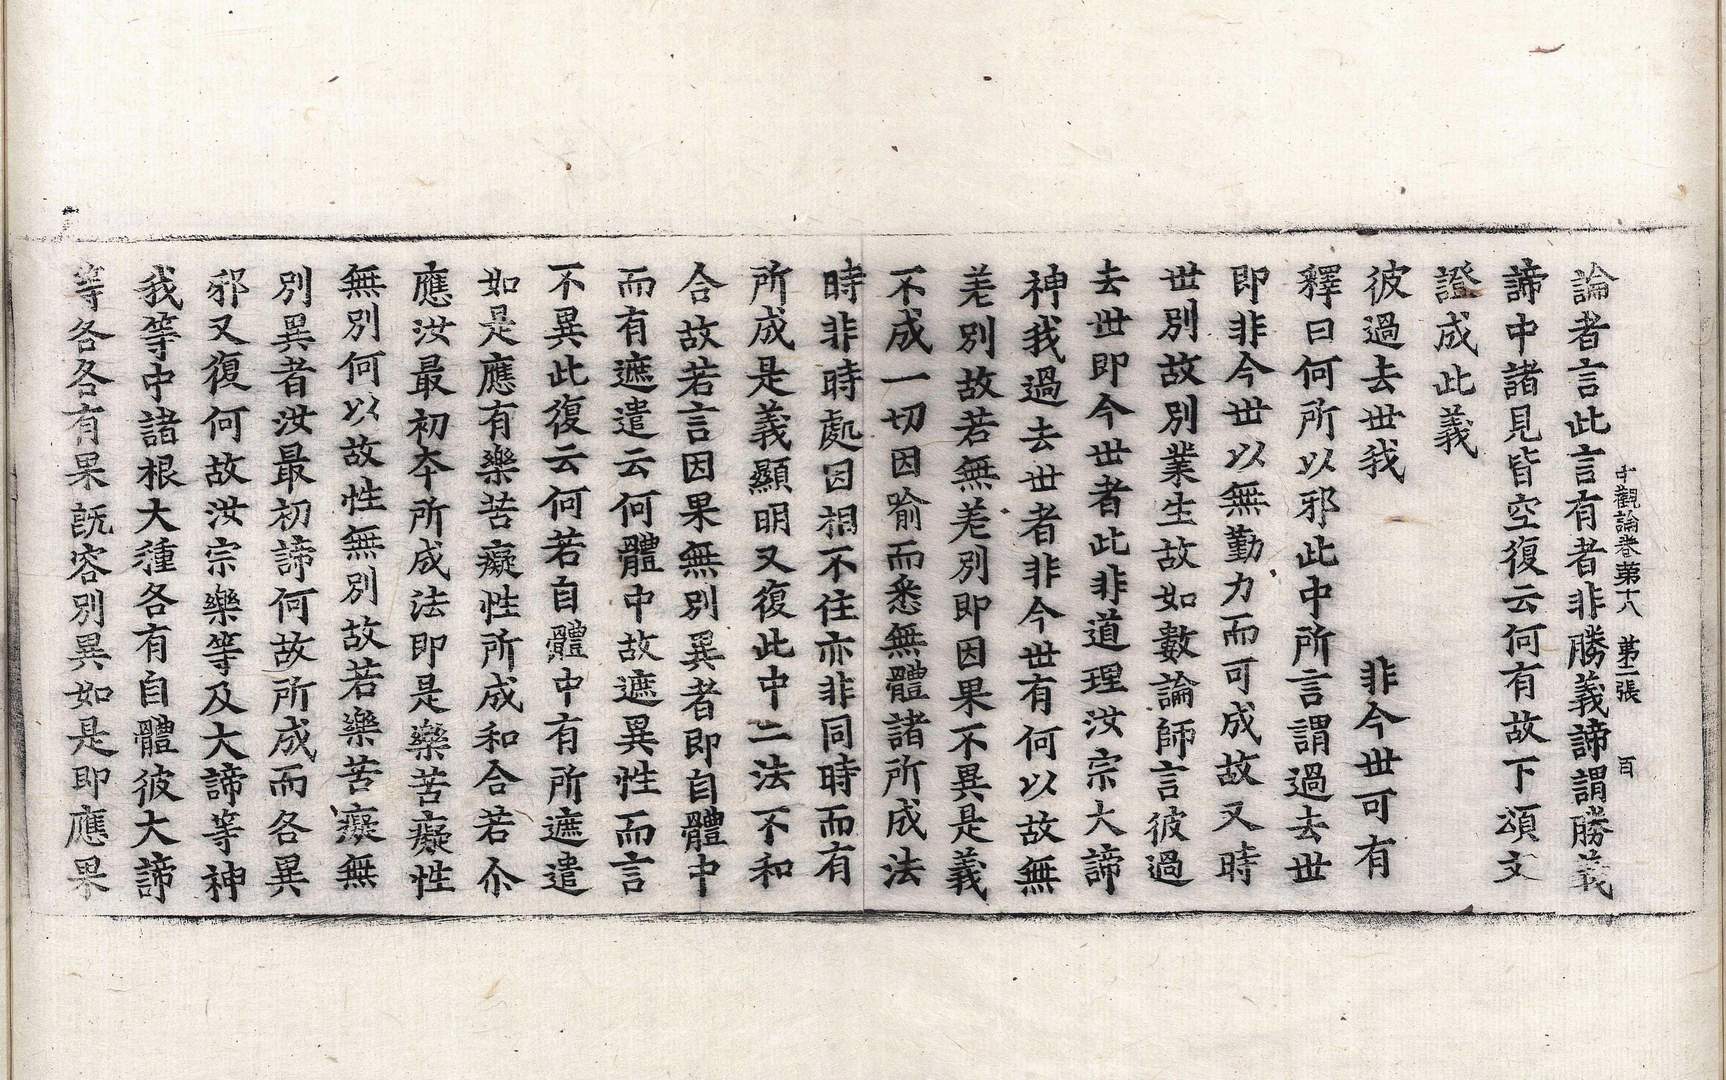 中觀論卷第十八　第二張　百
論者言此言有者非勝義諦謂勝義
諦中諸見皆空復云何有故下頌文
證成此義
彼過去世我　　非今世可有
釋曰何所以邪此中所言謂過去世
即非今世以無勤力而可成故又時
世別故別業生故如數論師言彼過
去世即今世者此非道理汝宗大諦
神我過去世者非今世有何以故無
差別故若無差別即因果不異是義
不成一切因喻而悉無體諸所成法
時非時處因相不住亦非同時而有
所成是義顯明又復此中二法不和
合故若言因果無別異者即自體中
而有遮遣云何體中故遮異性而言
不異此復云何若自體中有所遮遣
如是應有樂苦癡性所成和合若尒
應汝最初夲所成法即是樂苦癡性
無別何以故性無別故若樂苦癡無
別異者汝最初諦何故所成而各異
邪又復何故汝宗樂等及大諦等神
我等中諸根大種各有自體彼大諦
等各各有果旣容別異如是即應果